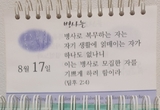 벵사는
8월 17일
병사로 복무하는 자는
자기 생활에 얽매이는 자가
하나도 없나니
이는 병사로 모집한 자를
기쁘게 하려 함이라
(딤후 2:4)